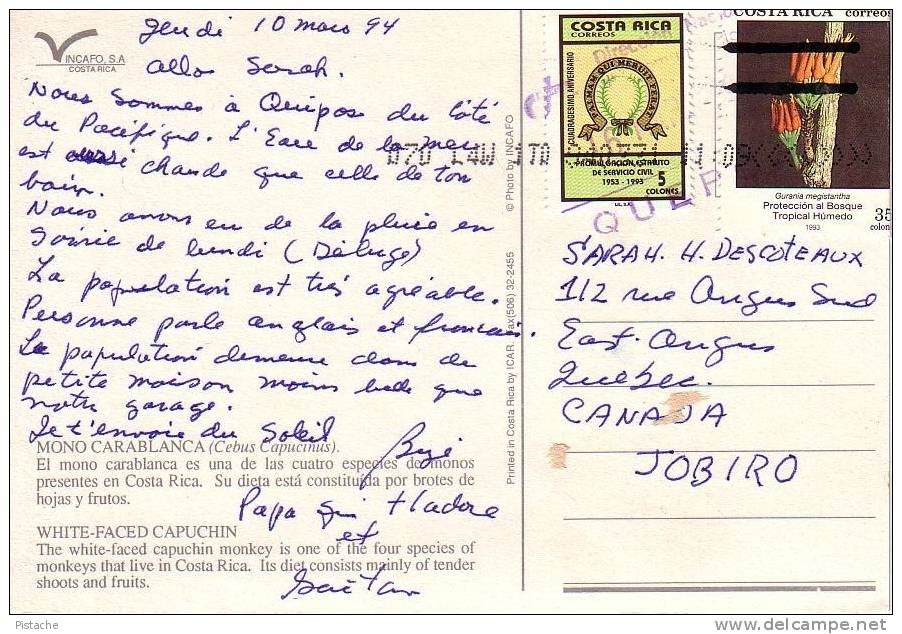 INCAFO, S.A
COSTA RICA
Jeudi 10 mars 94
Allos Sarah.
Nous sommes à Quépos du Côté
du Pacifique. L'Eau de la mer
est aussi chaude que celle de ton
bain.
Nous avons eu de la pluie en
soirée de lundi (Déluge)
La population est très agréable.
Personne parle anglais et francais.
La population demeure dans de
petite maison moins belle que
notre garage.
Je t'envoie du Soleil
Papa qui t'adore
et
Gaétan
MONO CARABLANCA (Cebus Capucinus).
El mono carablanca es una de las cuatro especies de monos
presentes en Costa Rica. Su dieta está constituida por brotes de
hojas y frutos.
WHITE-FACED CAPUCHIN
The white-faced capuchin monkey is one of the four species of
monkeys that live in Costa Rica. Its diet consists mainly of tender
shoots and fruits.
© Photo by INCAFO
Printed in Costa Rica by ICAR. Fax(506) 32-2455
COSTA RICA
CORREOS
CUADRAGESIMO ANIVERSARIO
PALMAM QUI MERUIT FERAT
PROMULGACION ESTATUTO
DE SERVICIO CIVIL
1953 - 1993
5
COLONES
COSTA RICA correos
Gurania megistantha
Protección al Bosque
Tropical Húmedo
1993
35
colon
Dirección Nacio
QUEP
SARAH. H. DESCOTEAUX
112 rue Angus Sud
East-Angus
Québec.
CANADA
JOBIRO
Pistache
www.delcampe.net